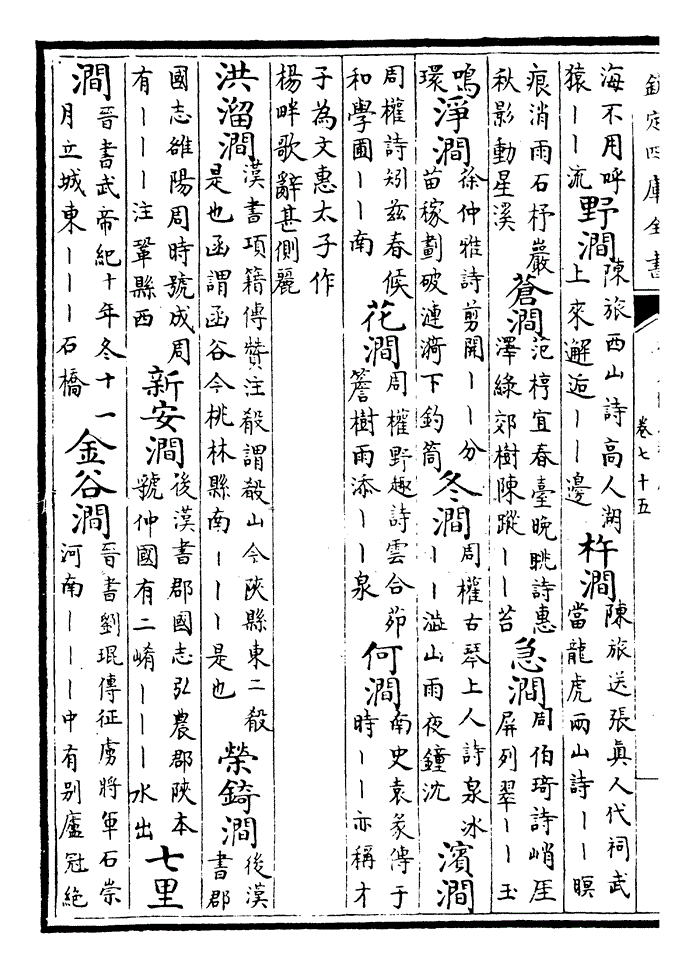 欽定四庫全書
卷七十五
海不用呼猿丨丨流野澗陳旅西山詩高人湖上來邂逅丨丨邊杵澗陳旅送張真人代祠武當龍虎兩山詩丨丨暝
痕消雨石杼巖秋影動星溪蒼澗范梈宜春臺晚眺詩惠澤綠郊樹陳蹤丨丨苔急澗周伯琦詩峭厓屏列翠丨丨玉
鳴環淨澗徐仲雅詩剪開丨丨分苗稼劃破漣漪下釣筒冬澗周權古琴上人詩泉冰丨丨澁山雨夜鐘沈濱澗
周權詩矧兹春候和學圃丨丨南花澗周權野趣詩雲合茆簷樹雨添丨丨泉何澗南史袁彖傳于時丨丨亦稱才
子為文惠太子作楊畔歌辭甚側麗
洪溜澗漢書項籍傳贊注殽謂殽山今陜縣東二殽是也函謂函谷今桃林縣南丨丨丨是也榮錡澗後漢書郡
國志雒陽周時號成周有丨丨丨注鞏縣西新安澗後漢書郡國志弘農郡陜本號仲國有二崤丨丨丨水出七里
澗晉書武帝紀十年冬十一月立城東丨丨丨石橋金谷澗晉書劉琨傳征虜將軍石崇河南丨丨丨中有别廬冠絶